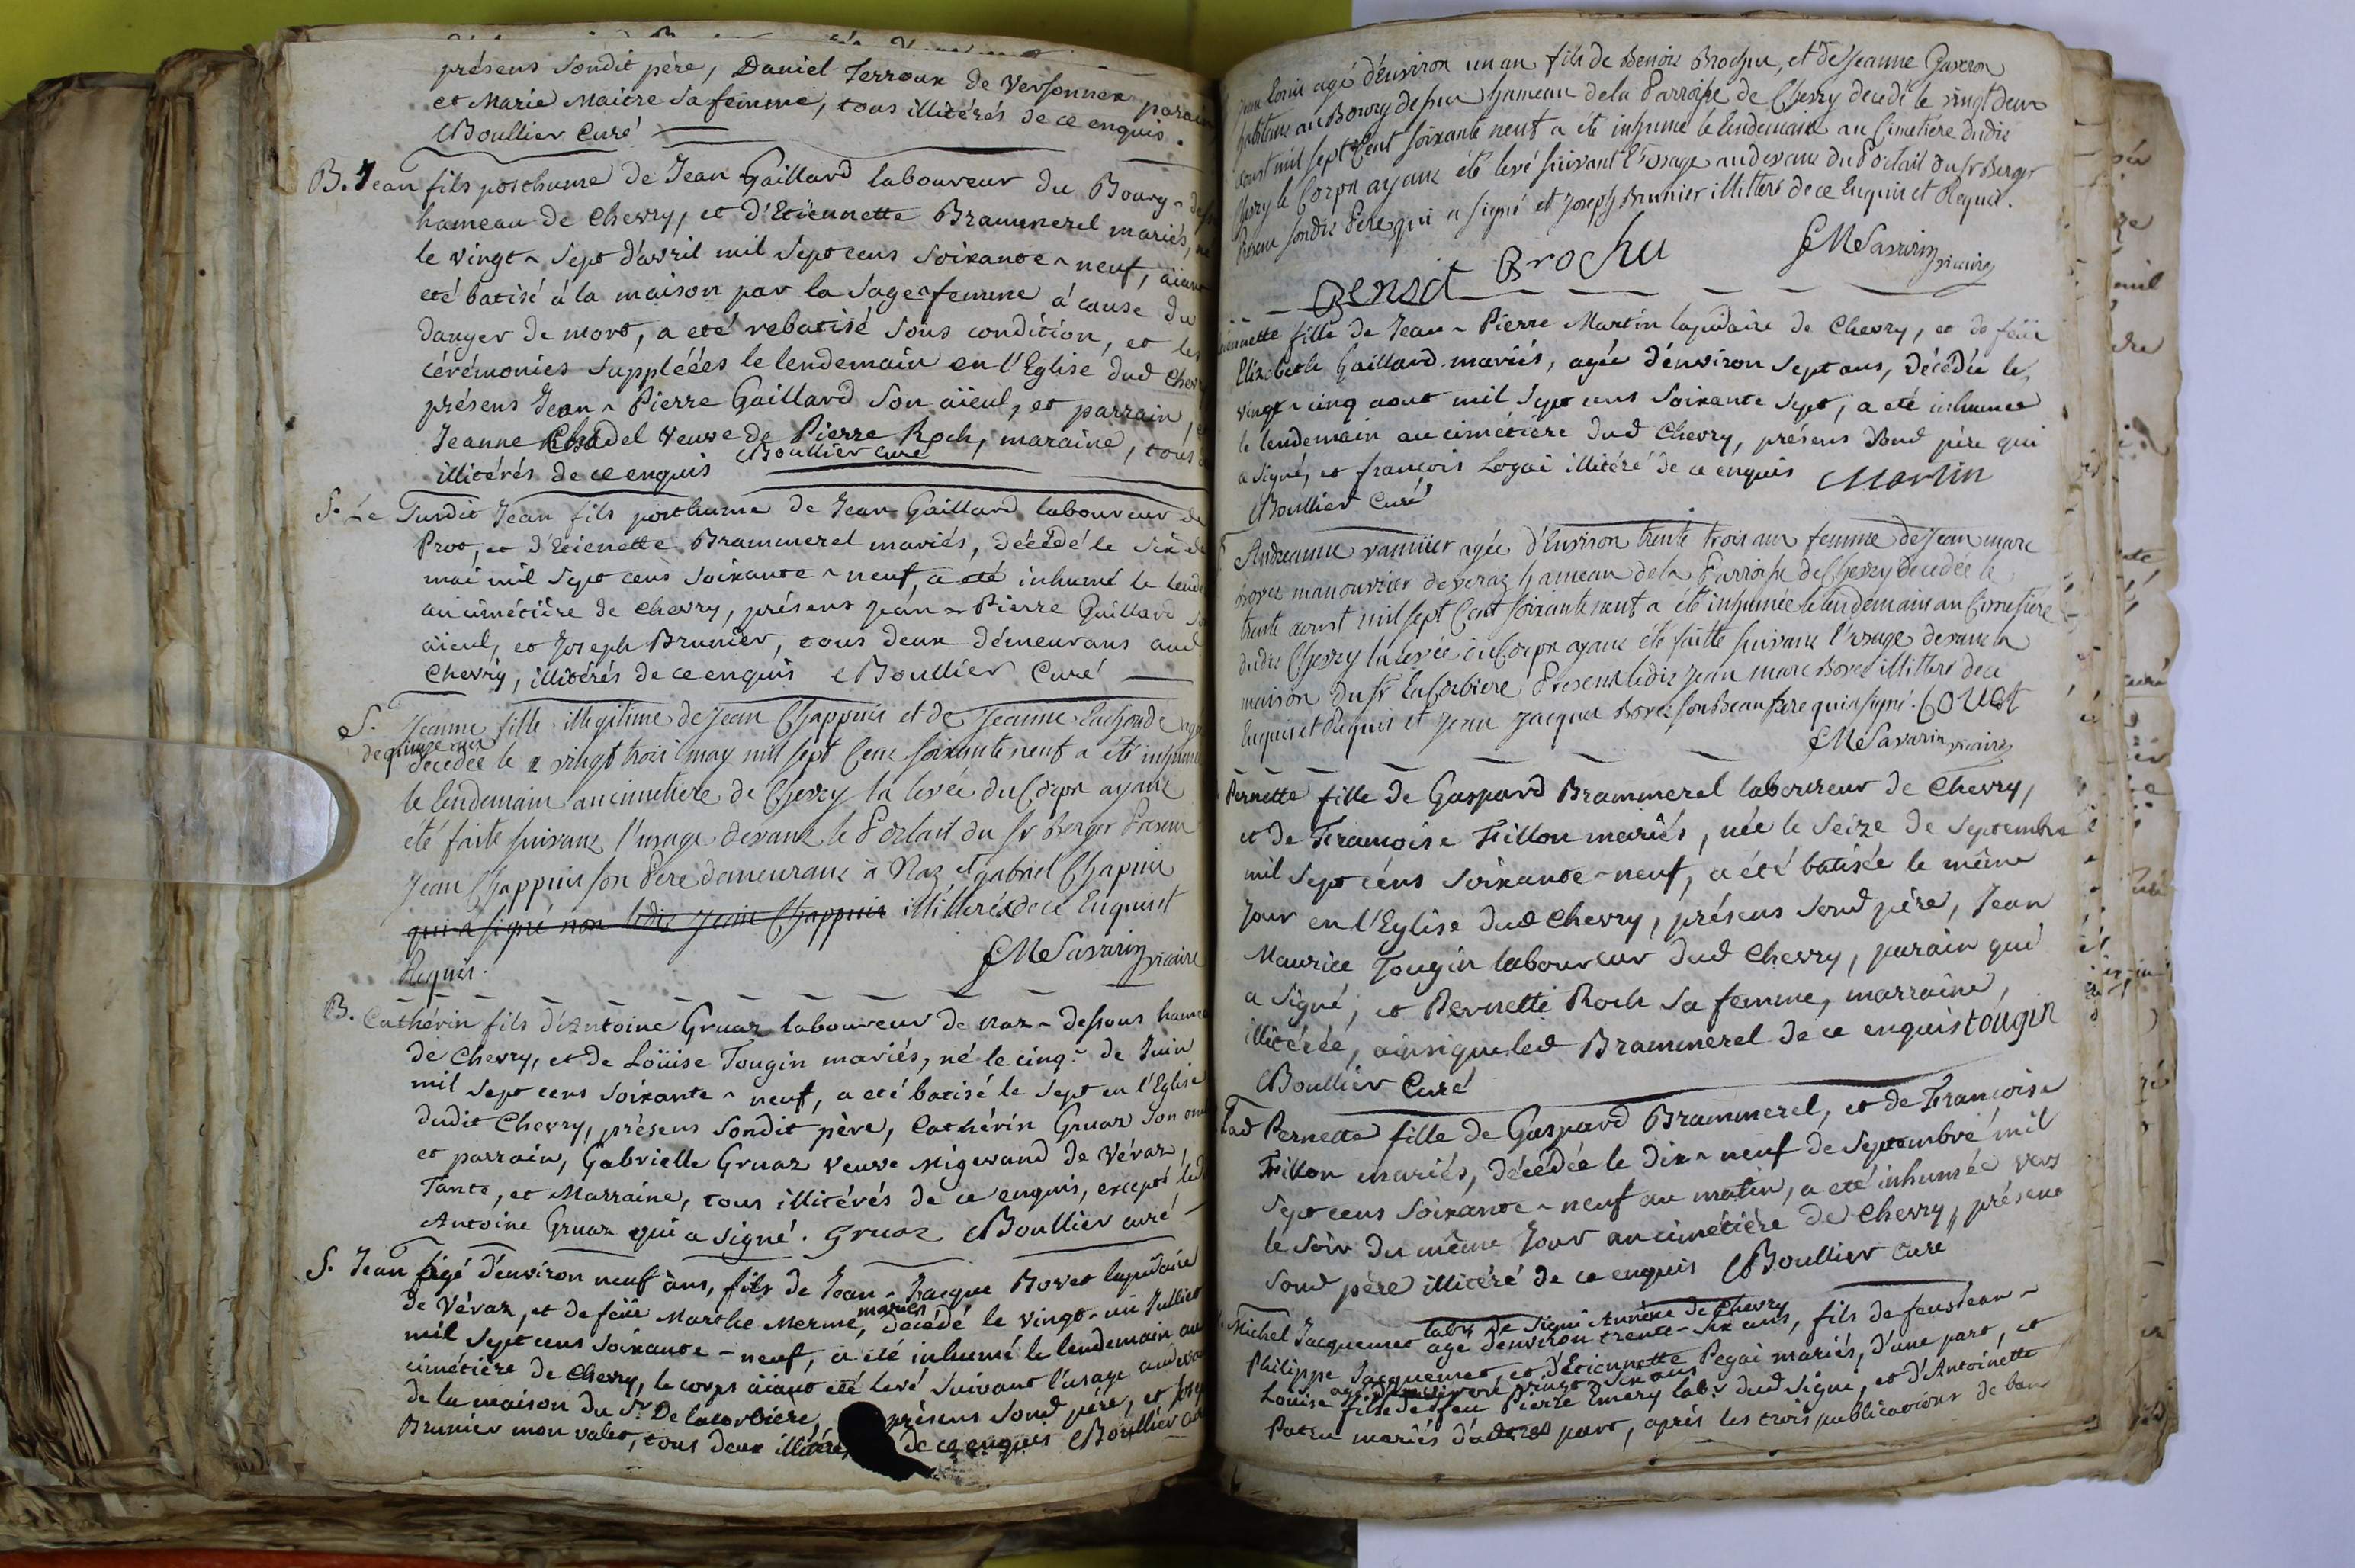 présens sondit père, Daniel Terroux de Versonnex parain
et Marie Maitre sa femme, tous illitérés de ce enquis.
Boullier Curé
B. Jean fils posthume de Jean Gaillard laboureur du Bourg-
hameau de Chevry, et d'Etiennette Brammerel mariés, né
le vingt-sept d'avril mil sept cens soixante-neuf, aiant
eté batisé à la maison par la Sage-femme à cause du
danger de mort, a eté rebatisé sous condition, et les
cérémonies suppléées le lendemain en l'Eglise dud Chevry
présens Jean-Pierre Gaillard son aïeul, et parrain,
Jeanne veuve de Pierre Roch, maraine, tous
illitérés de ce enquis Boullier curé
S. Le Susdit Jean fils posthume de Jean Gaillard laboureur de
Prost, et d'Etienette Brammerel mariés, décédé le six de
mai mil sept cens soixante-neuf, a eté inhumé le lend
au cimétière de Chevry, présens Jean-Pierre Gaillard
aïeul, et Joseph Brunier, tous deux démeurans aud
Chevry, illitérés de ce enquis Boullier Curé
S. Jeanne fille illegitime de Jean Chappuis et de Jeanne agée
de quinze ans
decedée le vingt trois may mil sept Cent soixante neuf a été inhumée
le lendemain au cimetiere de Chevry la levée du Corps ayant
été faite suivant l'usage devant le Portail du Sr Berger Present
Jean Chappuis son Pere demeurant à Naz et gabriel Chapuis
qui a signé non ledit Jean Chappuis illitterés de ce Enquis et
Requis. JM Savarin vicaire
B. Cathérin fils d'Antoine Gruaz laboureur de Naz-dessous hameau
de Chevry, et de Loüise Tougin mariés, né le cinq de Juin
mil sept cens soixante-neuf, a eté batisé le sept en l'Eglise
dudit Chevry, présens sondit père, Cathérin Gruaz son oncle
et parrain, Gabrielle Gruaz veuve Migerand de Véraz,
Tante, et Marraine, tous illitérés de ce enquis, excepté led
Antoine Gruaz qui a signé. Gruaz Boullier curé
S. Jean agé d'environ neuf ans, fils de Jean-Jacque Bovet lapidaire
de Véraz, et de feüe Marthe Merme, mariés décédé le vingt-un Juillet
mil sept cens soixante-neuf, a eté inhumé le lendemain au
cimétière de Chevry, le corps aiant eté levé suivant l'usage audevant
de la maison du Sr De lacorbière, présens soud père, et Joseph
Brunier mon valet, tous deux illitérés de ce enquis Boullier curé
jean Louis agé d'environ un an fils de Benoit Brochu, et de Jeanne
habitans au Bourg dessu hameau dela Parroisse de Chevry decedé le vingt deux
aoust mil sept Cent soixante neuf a été inhumé le lendemain au Cimetiere dudit
Chevry le Corps ayant été levé suivant l'usage audevant du Portail du Sr Berger
Present sondit Pere qui a signé et Joseph Brunier illitteré de ce Enquis et Requis.
Benoit Brochu JM Savarin vicaire
fille de Jean-Pierre Martin lapidaire de Chevry, et de feüe
Elizabeth Gaillard mariés, agée d'environ sept ans, décédée le
vingt-cinq aout mil sept cens soixante sept, a eté inhumée
le lendemain au cimétière dud Chevry, présens soud père qui
a signé, et françois Logai illitéré de ce enquis Martin
Boullier Curé
agée d'Environ trente trois ans femme de Jean marc
bovet manouvrier de veraz hameau dela Parroisse de Chevry decedée le
trente aoust mil sept Cent soixante neuf a été inhumée le lendemain au Cimetiere
dudit Chevry la levée du Corps ayant été faitte suivant l'usage devant la
maison du Sr LaCorbiere Present ledit Jean marc Bovet illitteré de ce
Enquis et Requis et Jean Jacques Bovet son Beau frere qui a signé. bovet
JM Savarin vicaire
Pernette fille de Gaspard Brammerel laboureur de Chevry,
et de Françoise Fillon mariés, née le seize de septembre
mil sept céns soixante-neuf, a été batisée le même
jour en l'Eglise dud Chevry, présens soud père, Jean
Maurice Tougin laboureur dud Chevry, parain qui
a signé, et Pernette Roch sa femme, marraine,
illitérée, ainsi que led Brammerel de ce enquis tougin
Boullier Curé
Lad Pernette fille de Gaspard Brammerel, et de Françoise
Fillon mariés, décédée le dix-neuf de septembre mil
sept cens soixante-neuf au matin, a eté inhumée vers
le soir du même jour au cimétière de Chevry, présent
soud père illitéré de ce enquis Boullier curé
labr de Signi Annexe de Chevry
Michel Jacquemet agé d'environ trente-six ans, fils de feus Jean-
Philippe Jacquemet, et d'Etiennette Pegai mariés, d'une part, et
agée d'environ vingt-six ans
Louise fille de feu Pierre Emery labr dud Signi, et d'Antoinette
mariés d'autre part, après les trois publications de bans